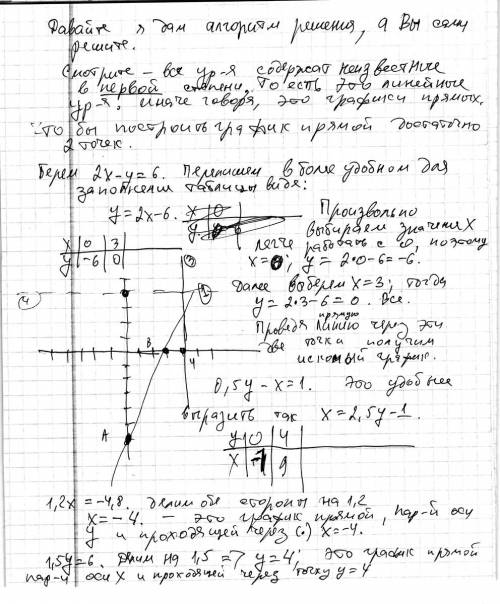 Давайте я дам алгоритм решения, а Вы сами
решите.
Смотрите – все ур-я содержат неизвестные
в первой степени, То есть это линейные
ур-я. Иначе говоря, это графики прямых.
Что бы построить график прямой достаточно
2 точек.
Берем 2x-y=6. Перепишем в более удобном для
заполнения таблицы виде:
y=2x-6.
x 0
y
Произвольно
выбираем значения x
легче работать с 0, поэтому
x=0; y=2·0-6=-6.
x 0 3
y -6 0
Далее выберем x=3; тогда
y=2·3-6=0. Все.
Проведя прямую линию через эти
две точки получим
искомый график.
3
4
1
B
4
A
0,5y-x=1. Это удобнее
выразить так x=2,5y-1.
y 0 4
x -1 9
1,2x=-4,8. Делим обе стороны на 1,2
x=-4. – это график прямой, пар-й оси
y и проходящей через (·) x=-4.
1,5y=6. Делим на 1,5 => y=4; это график прямой
пар-й оси x и проходящей через точку y=4